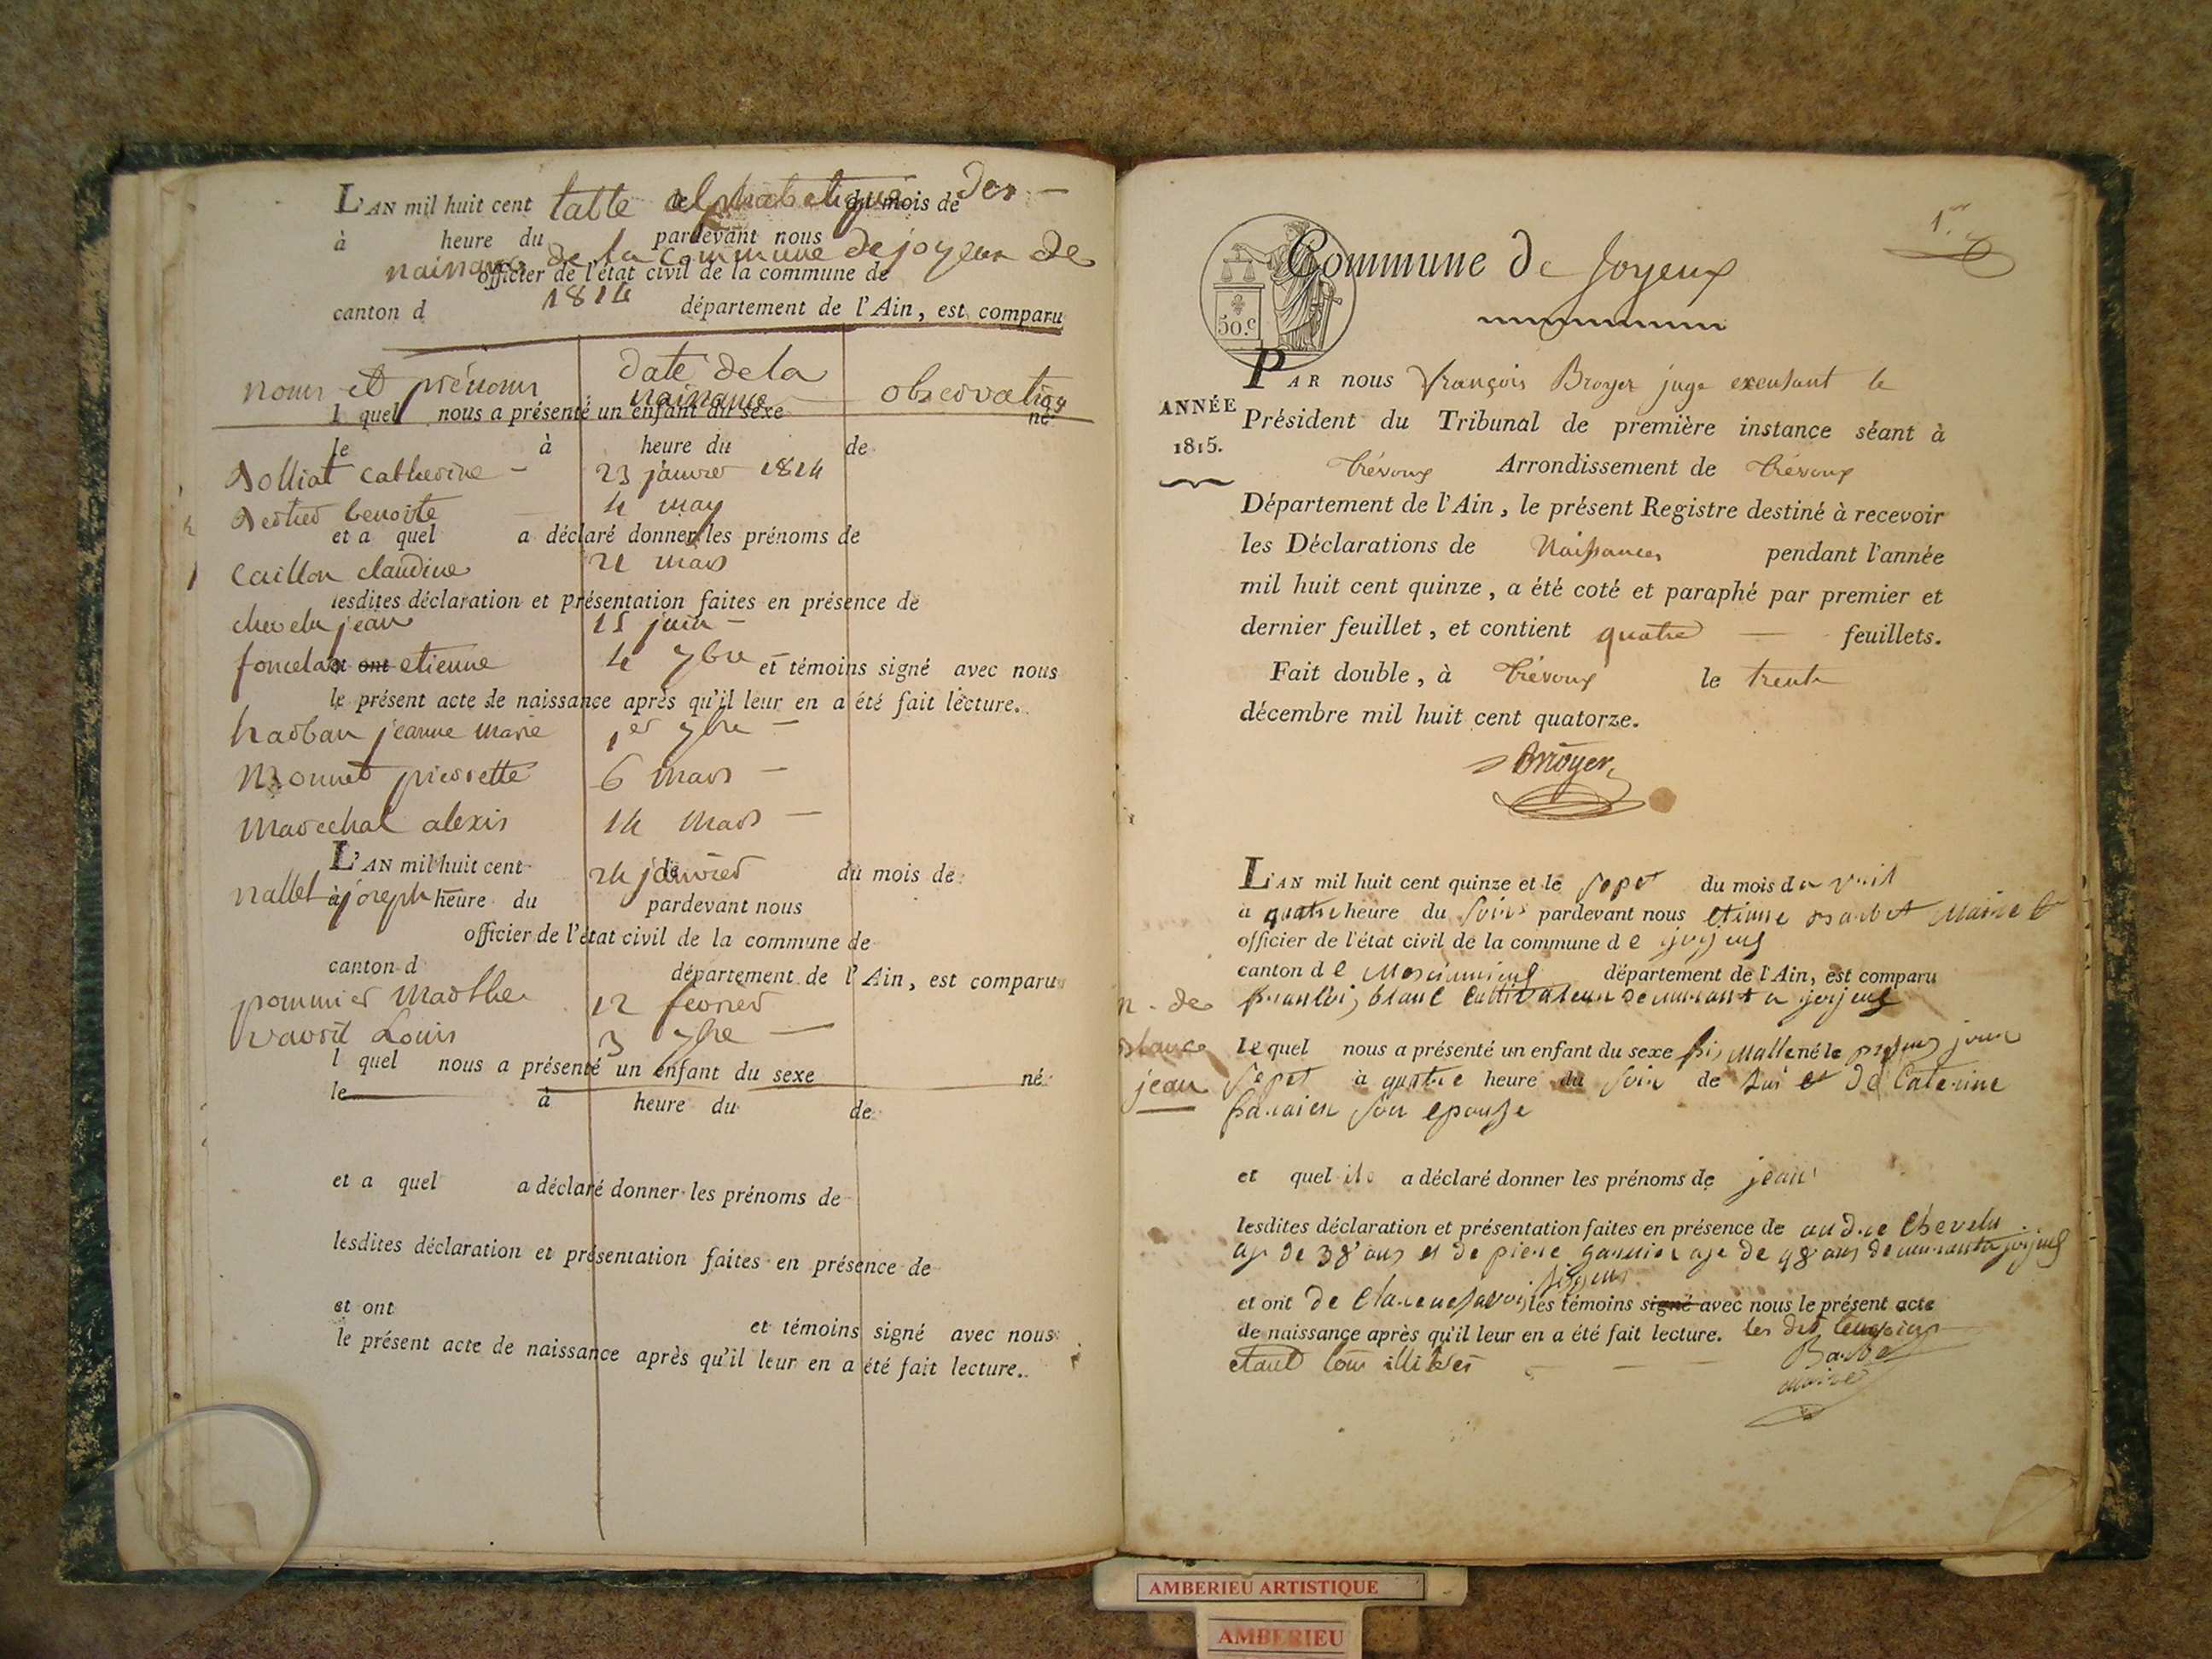 L'AN mil huit cent le du mois de
table alphabetique des
à heure du pardevant nous
naisances de la commune de joyeux de
officier de l'état civil de la commune de
1814
canton d département de l'Ain, est comparu
noms et prénoms
date de la naisance
observation
l quel nous a présenté un enfant du sexe né
le à heure du de
Bolliat catherine - 23 janvier 1814
benoite - 4 may
et a quel a déclaré donner les prénoms de
Caillon claudine 21 mars
lesdites déclaration et présentation faites en présence de
chevelu jean 15 juin -
et ont etienne 4 7bre et témoins signé avec nous
le présent acte de naissance après qu'il leur en a été fait lecture.
jeanne marie 1er 7bre -
Monnet pierrette 6 mars -
Marechal alexis 14 mars -
L'AN mil huit cent le du mois de
nallet joseph 24 janvier
à heure du pardevant nous
officier de l'état civil de la commune de
canton d département de l'Ain, est comparu
pommier Marthe 12 fevrier
vavril Louis 3 7bre -
l quel nous a présenté un enfant du sexe né
le à heure du de
et a quel a déclaré donner les prénoms de
lesdites déclaration et présentation faites en présence de
et ont et témoins signé avec nous
le présent acte de naissance après qu'il leur en a été fait lecture.
1.er
Commune de Joyeux
50.c
PAR nous François Broyer juge exerçant le
ANNÉE
1815.
Président du Tribunal de première instance séant à
Trévoux Arrondissement de Trévoux
Département de l'Ain, le présent Registre destiné à recevoir
les Déclarations de Naissances pendant l'année
mil huit cent quinze, a été coté et paraphé par premier et
dernier feuillet, et contient quatre — feuillets.
Fait double, à Trévoux le trente
décembre mil huit cent quatorze.
Broyer
L'AN mil huit cent quinze et le sept du mois d avril
a quatre heure du soir pardevant nous etienne Barbet Maire
officier de l'état civil de la commune de joyeus
canton de département de l'Ain, est comparu
blanc cultivateur demurant a joyeus
n. de
blanc
jean
le quel nous a présenté un enfant du sexe né le jour
sept à quatre heure du soir de lui et de Caterine
son epouse
et quel a déclaré donner les prénoms de jean
lesdites déclaration et présentation faites en présence de andre Chevelu
age de 38 ans et de piere garnier age de 48 ans demurant a joyeus
et ont de les témoins signé avec nous le présent acte
de naissance après qu'il leur en a été fait lecture. les dit temoins
etant tous illitéres
Barbet
maire
AMBERIEU ARTISTIQUE
AMBERIEU